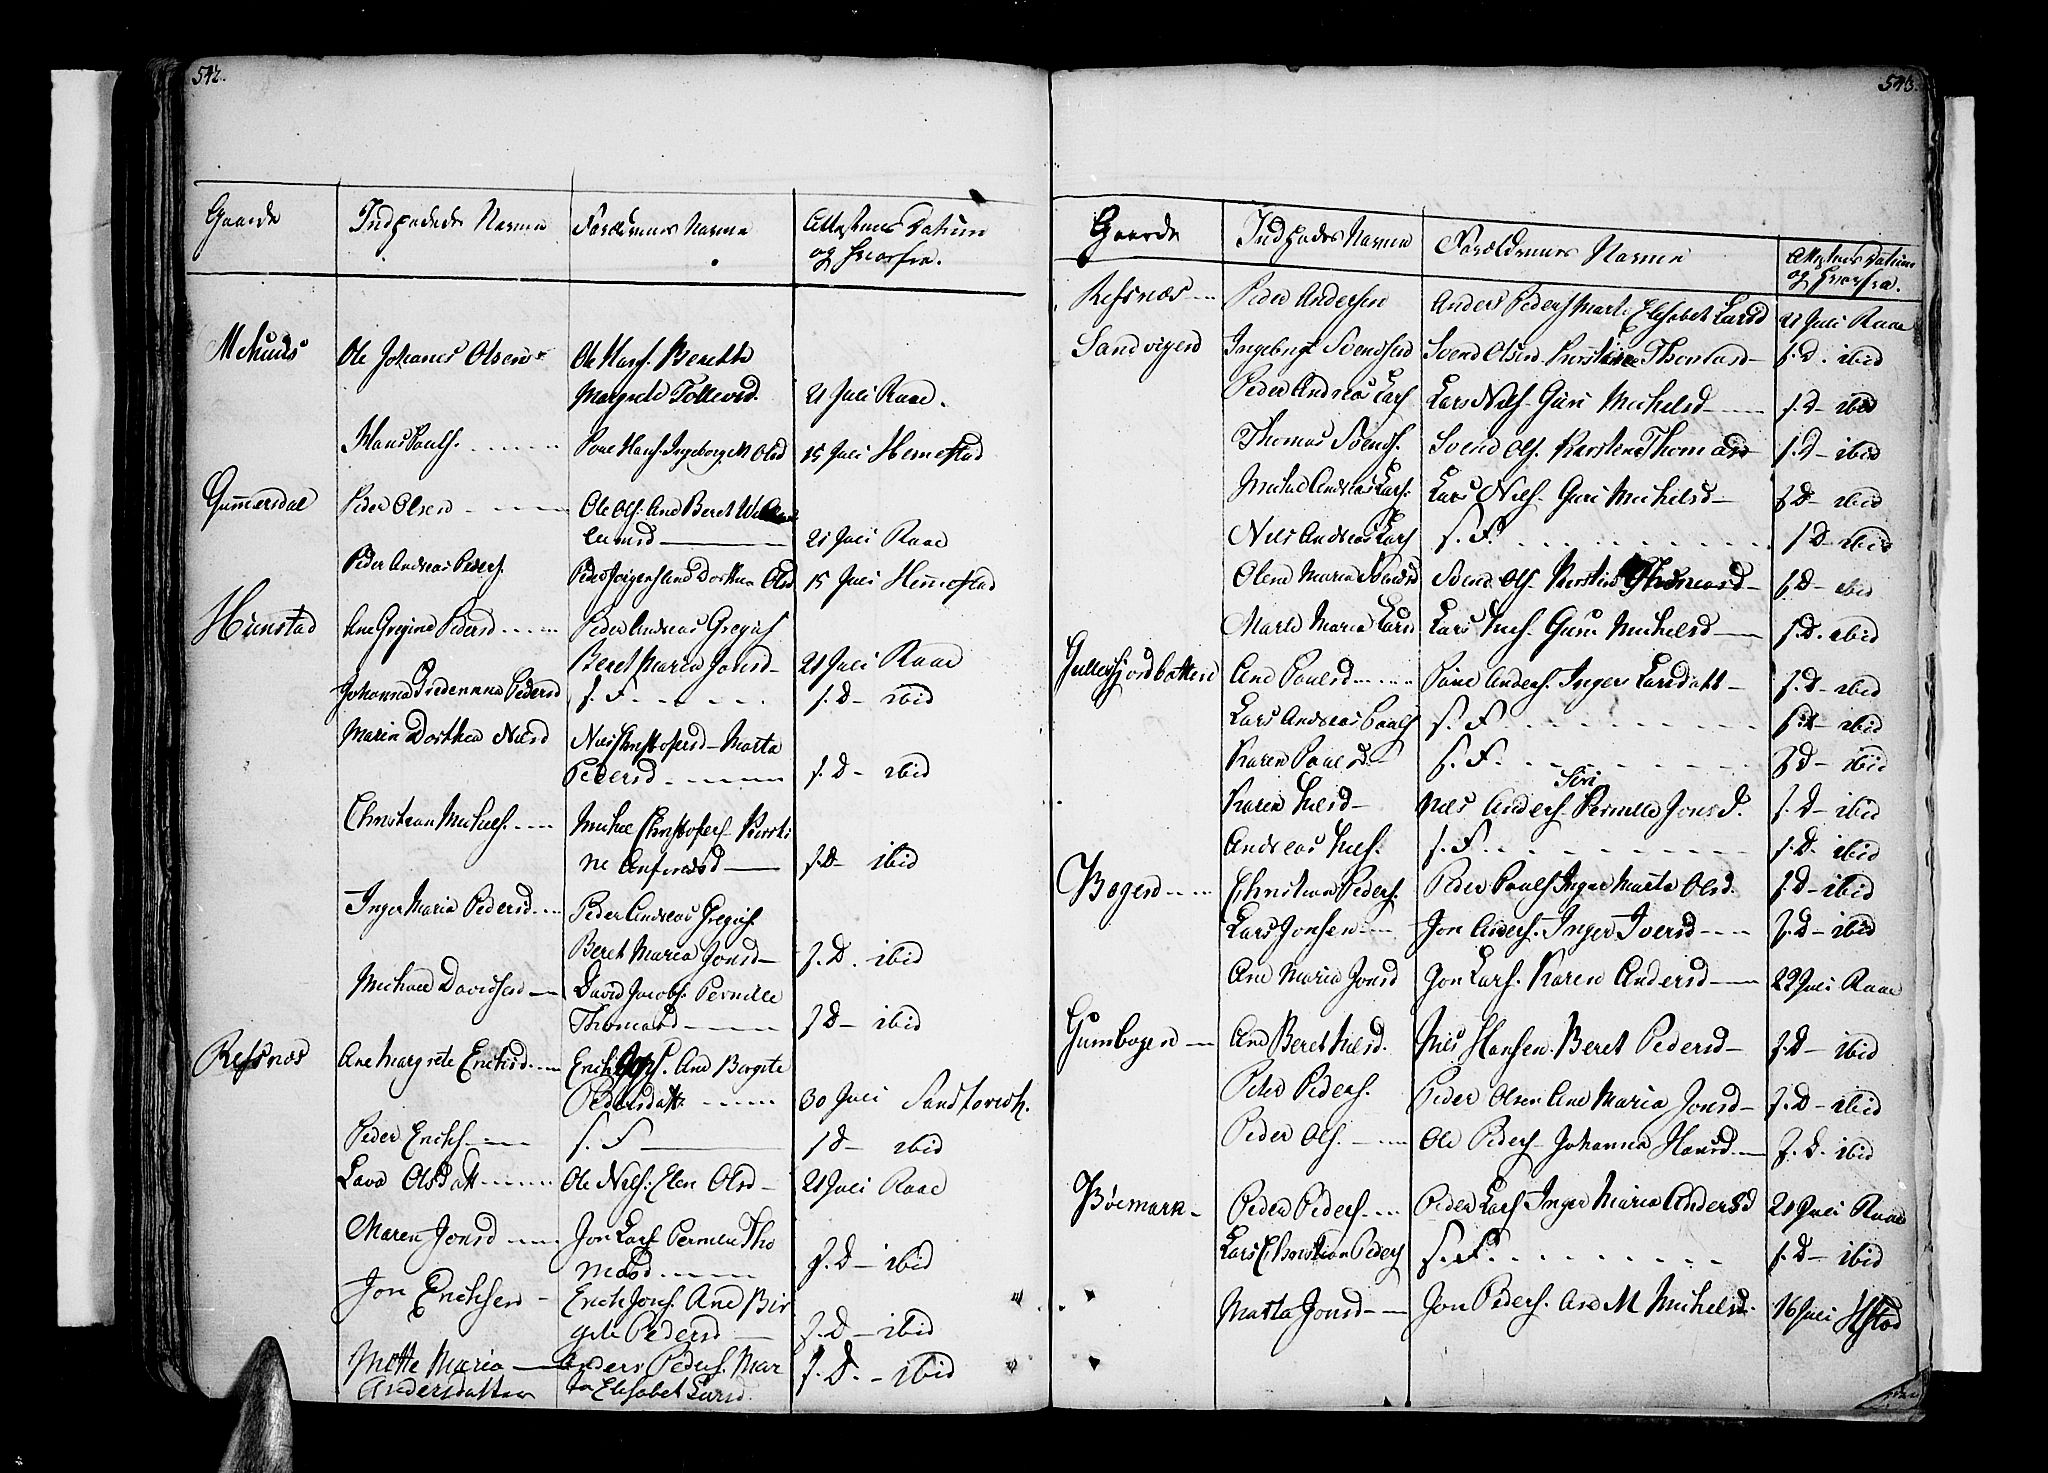 542.
Gaarde Indpodedes Navne Foreldrenes Navne Attestens Datum
og hvorfra.
Mehuus Ole Johanes Olsen Ole Hansf. Beretha
Margrete Tollevsd. 21 Juli Raae.
Hans Paulf. Poul Hansf. Ingeborg M Olsd 15 Juli Hemestad
Gummersdal Peder Olsen Ole Olf. Ane Beret
21 Juli Raae
Peder Andreas Peders. Peder Jørgens Ane Dorthea Olsd 15 Juli Hemestad
Hunstad Ane Gregine Pedersd Peder Andreas Gregisf
Beret Maria Jonsd 21 Juli Raae
Johanna Fredericna Pedersd f. F. f. D. ibid
Maria Dorthea Nielsd Niels Christofers Marta
Pedersd. f. D. ibid
Christian Michels. Michel Christofers Kirsti
ne f. D. ibid
Inger Maria Pedersd Peder Andreas Gregisf.
Beret Maria Jonsd f. D. ibid
Michael Davidsen David Jacobs. Pernille
Thomasd f. D. ibid
Refsnæs Ane Margrete Erichsd Erich Ane Birgite
Pedersdatt. 30 Juli Sandtorvsh.
Peder Erichf. f. F. f. D. ibid
Lava Olsdatt Ole Nilsf. Elen Olsd 21 Juli Raae
Maren Jonsd Jon Larsf Pernilla Tho
masd f. D. ibid
Jon Erichsen Erich Jonsf. Ane Bir
gite Pedersd f. D. ibid
Mette Maria Anders Pedersf. Mar
Andersdatter ta Elisabet Larsd. f. D. ibid
543.
Gaarde Indpodes Navne Foreldrenes Navne Attestens Datum
og hvorfra.
Refsnæs Peder Andersen Anders Peders Marte Elisabet Larsd 21 Juli Raae
Sandvigen Ingebrigt Svendsen Svend Olsen Kirstine Thomasd f. D. ibid
Peder Andreas Larsf Lars Nilsf. Guri Michelsd f. D. ibid
Thomas Svendsf. Svend Olsf. Karsten Thomasd f. D. ibid
Michel Andreas Larsf. Lars Nilsf. Guri Michelsd f. D. ibid
Niels Andreas Larsf f. F. f. D. ibid
Olene Maria Svendsd Svend Olsf. Kirstine Thomasd f. D. ibid
Marte Maria Larsd Lars Nielsf. Guri Michelsd f. D. ibid
Gullesfjordbotten Ane Paulsd Paul Andersf. Inger Larsdatt f. D. ibid
Lars Andreas Paulsf f. F. f. D. ibid
Karen Paulsd f. F. f. D. ibid
Karen Nielsd Niels Andersf. Siri Pernille Jonsd. f. D. ibid
Andreas Nielsf. f. F. f. D. ibid
Bogen Christian Pedersf. Peder Paulsf Inger Marta Olsd. f. D. ibid
Lars Jonsen Jon Andersf. Inger Iversd f. D. ibid
Ane Maria Jonsd Jon Larsf. Karen Andersd 22 Juli Raae
Gumbogen Ane Beret Nielsd. Niels Hansen. Beret Pedersd f. D. ibid
Peter Pedersf. Peder Olsen Ane Maria Jonsd f. D. ibid
Peder Olsf. Ole Pedersf Johanna Hansd f. D. ibid
Bøemark Peder Pedersf Peder Larsf Inger Maria Andersd 21 Juli Raae
Lars Christian Pedersf f. F. f. D. ibid
Marta Jonsd Jon Pedersf. Ane M Michelsd 16 Juli Hstad